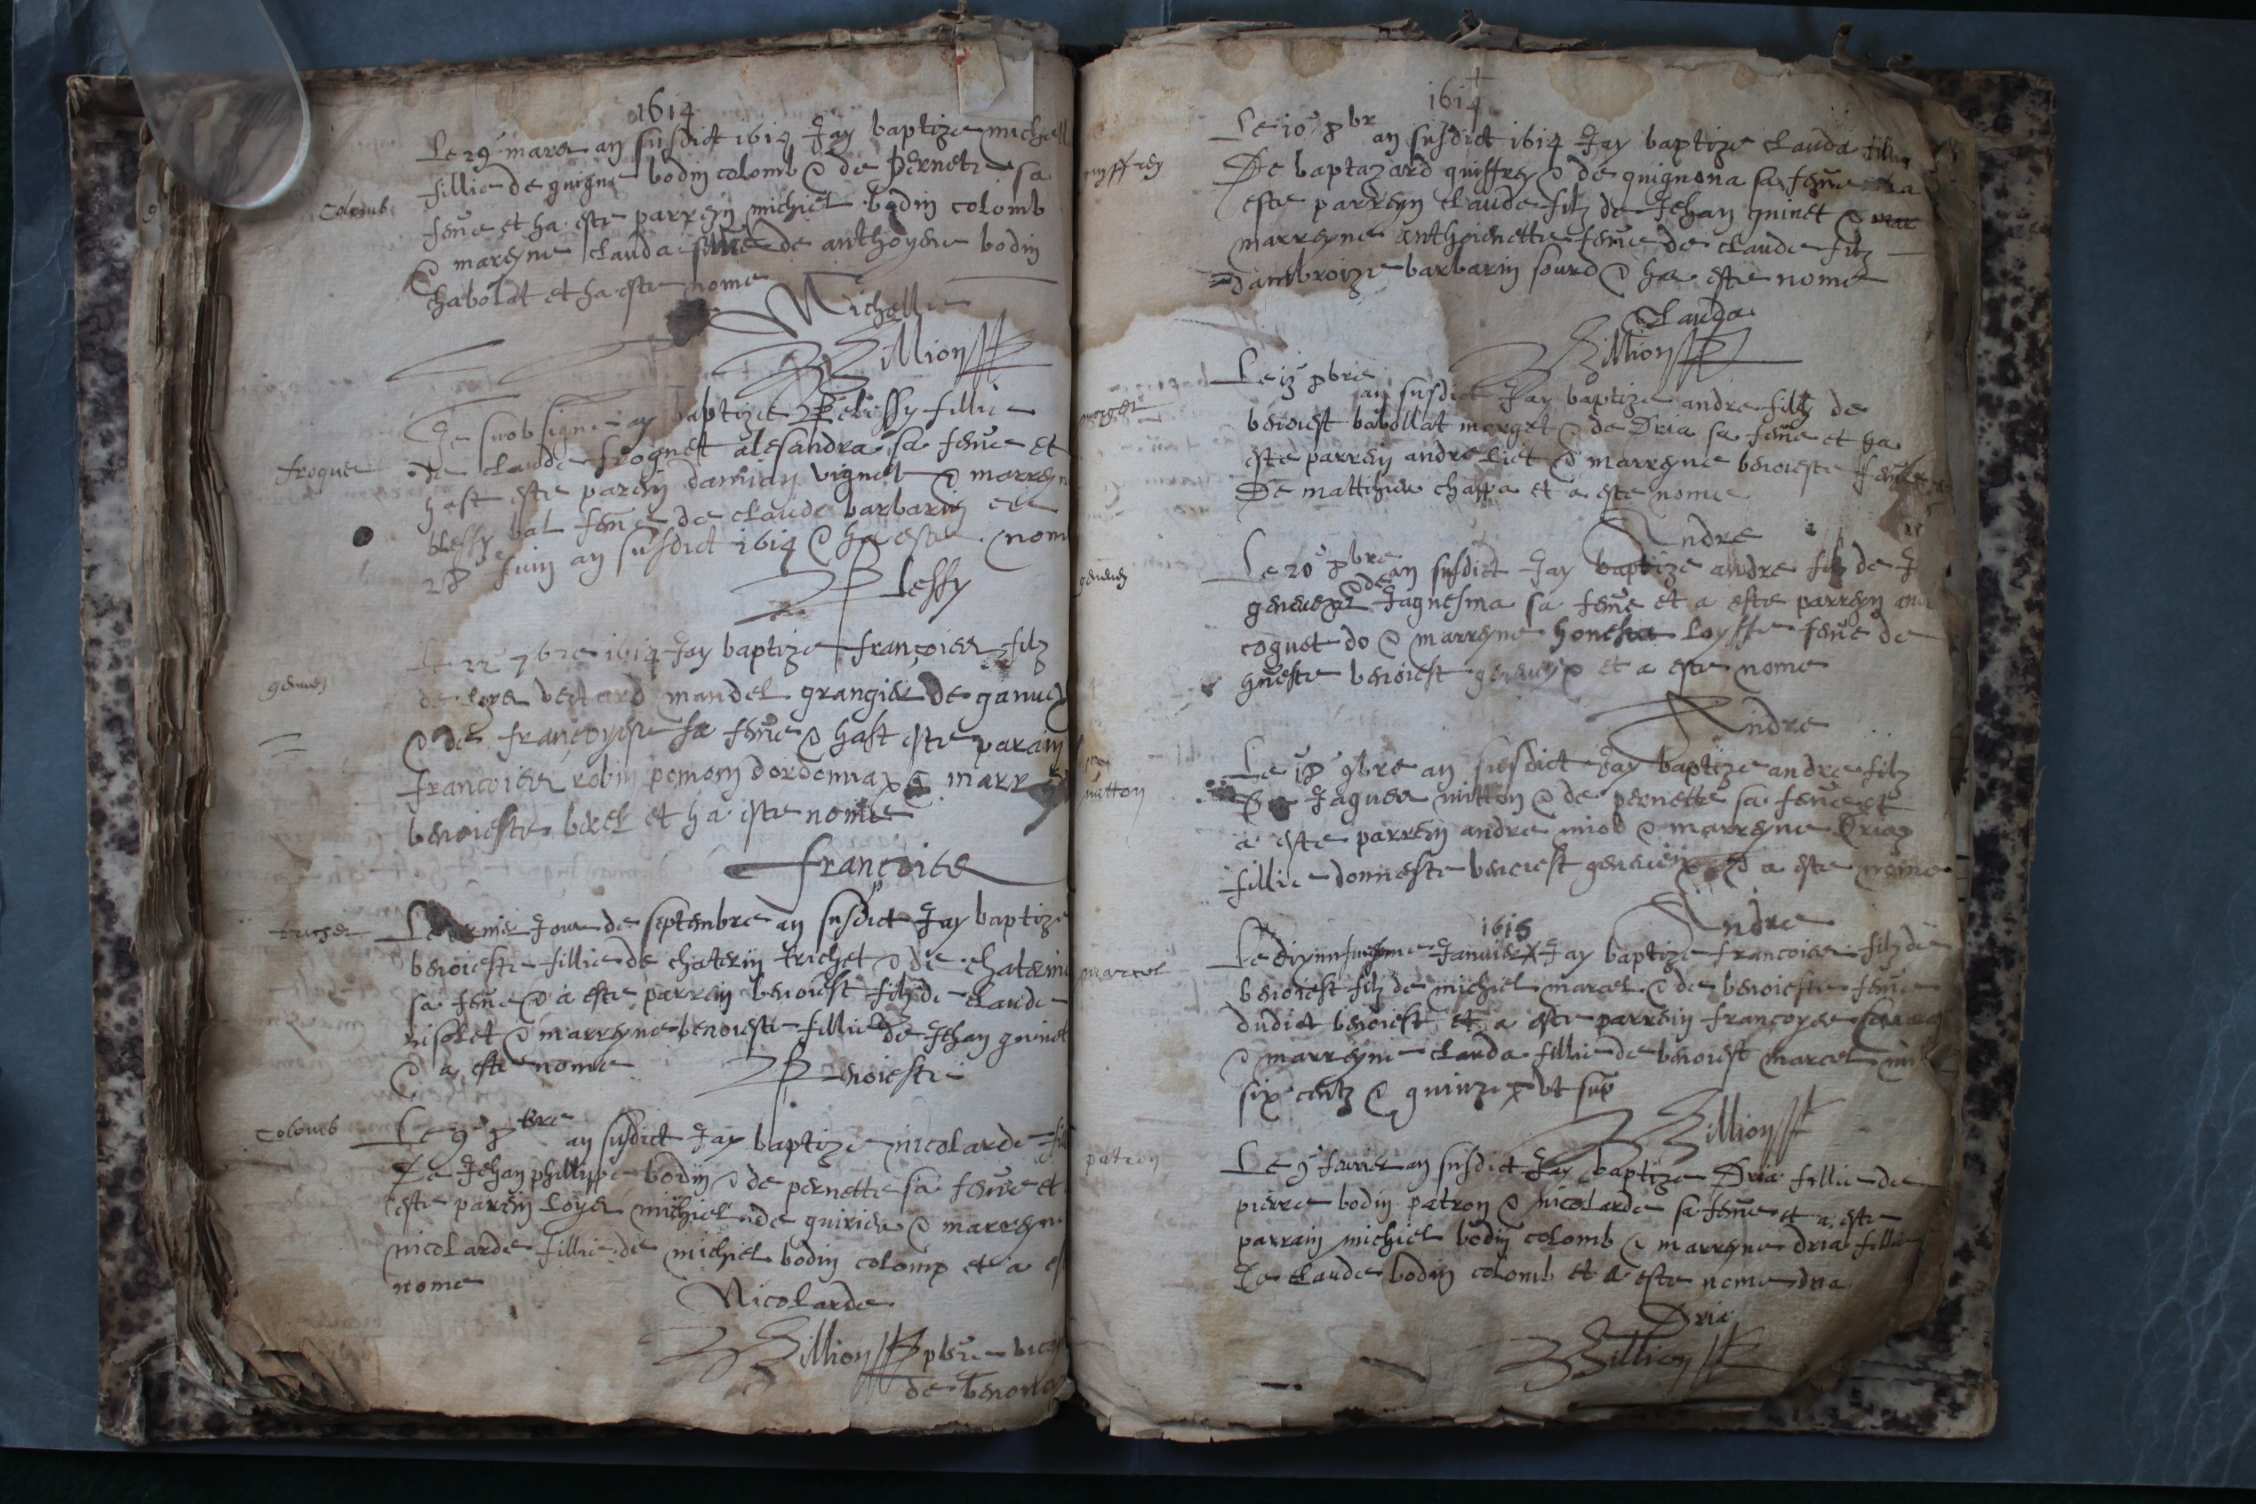 1614
Le 29 mars an susdict 1614 Jay baptize michell
fillie de guigne bodin colomb & de pernete sa
Colomb
feme et ha este parrein michiel bodin colomb
& mareyne clauda feme de anthoyene bodin
chabolat et ha este nome
Michelle
Billion
Je soub signe ay baptize Blessy fillie
froguet
de claude froguet alesandra sa feme et
hast este parein damian vignol & marreyn
blessy bal feme de claude barbarin ce
28 Juin an susdict 1614 & ha este nom
Blessy
Le 22 7bre 1614 Jay baptize françoies filz
de loyes vertard mandel grangier de ganuey
& de françoyse sa feme & hast este parain
françoies robin pomoni dordonnax & marr
benoieste berel et ha este nome
françoies
trichet
Le dernier Jour de septembre an susdict Jay baptize
benoieste fillie de chaterin trichet & de chaterine
sa feme & a este parrein benoiest filz de claude
nisolet & marreyne benoieste fillie de Jehan guinet
& a este nome Benoieste
Colomb
Le 9 8bre an susdict Jay baptize nicolarde fil
De Jehan phillippe bodin & de pernette sa feme et
este parrein loyes michiel de quirieu & marreyne
nicolarde fillie de michiel bodin colomp et a es
nome
Nicolarde
Billion pbre vica
de benon
1614
Le 10 8br an susdict 1614 Jay baptize clauda fillia
guyffrey
De baptazard guiffrey & de guignona sa feme
este parreyn claude filz de Jehan guinet & mar
marreyne anthoienette feme de claude filz
dambroize barbarin sourd & ha este nome
Clauda
Billion
Le 13 8bre an susdict Jay baptize andre filz de
morget
benoiest babollat morget & de Dria sa feme et ha
este parrein andre liet & marreyne benoieste feme
De matthieu chappa et a este nome
Andre
Le 20 8bre an susdict Jay baptize andre filz de J
geneuey
& de Jagnesma sa feme et a este parreyn and
coguet do & marreyne honeste loysse feme de
honeste benoiest geneueyx et a este nome
Andre
Le 18 9bre an susdict Jay baptize andre filz
mitton
De Jaques mitton & de pernette sa feme et
a este parrein andre miob & marreyne Dria
fillie donneste benoiest geneueix & a este nome
Andre
1615
Le Janvier Jay baptize françoies filz de
marcel
benoiest filz de michiel marcel & de benoieste feme
dudict benoiest et a este parrein françoyes
& marreyne clauda fillie de benoiest marcel mil
six centz & quinze ut sup
Billion
patron
Le 9 feurier an susdict Jay baptize Dria fillie de
pierre bodin patron & nicolarde sa feme et a este
parrain michiel bodin colomb & marreyne dria fillie
De claude bodin colomb et a este nome dria
Dria
Billion